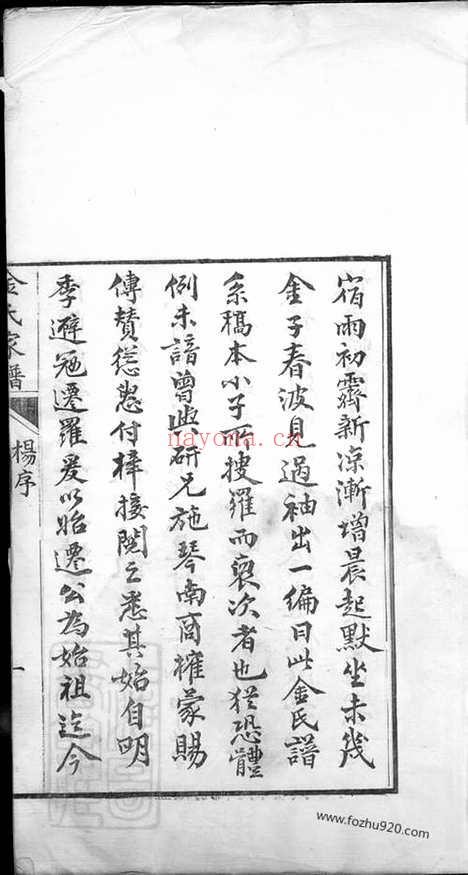 宿雨初霽新凉漸增晨起默坐未幾
金子春波見過袖出一編曰此金氏譜
系稿本小子所搜羅而裒次者也猶恐體
例未諳曾與研兄施琴南商搉蒙賜
傳贊慫恿付梓接閱之悉其始自明
季避冦遷羅爰以始遷公為始祖迄今
金氏家譜
楊序
一
nayona.cn
www.fozhu920.com